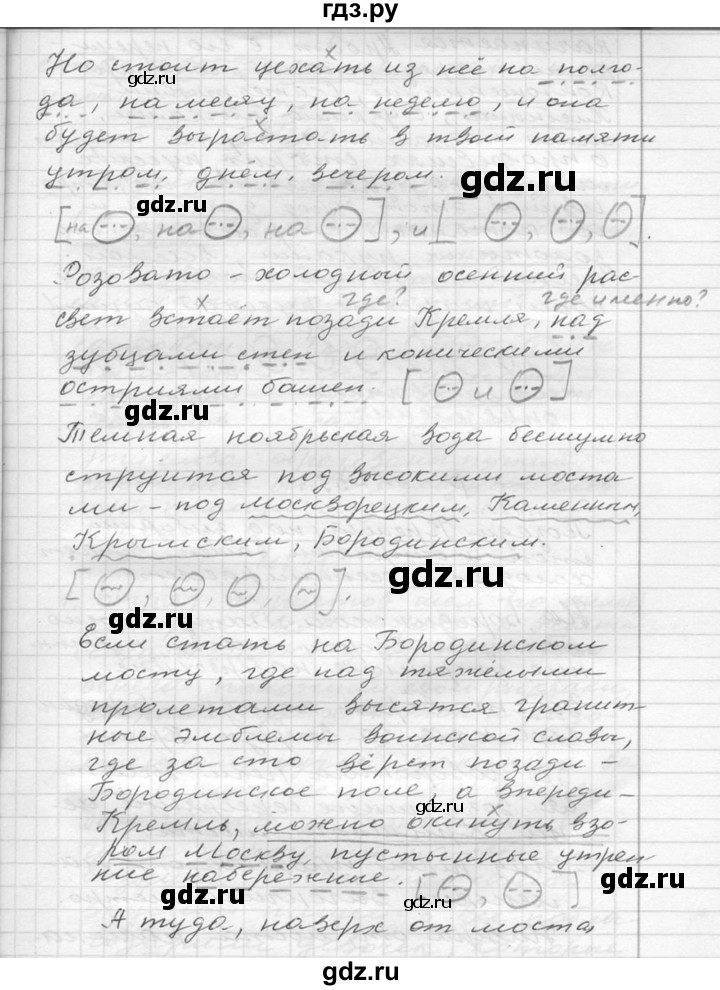 гдз.ру
Но стоит уехать из неё на полго-
да, на месяц, на неделю, и она
будет вырастать в твоей памяти
утром, днём, вечером.
gdz.ru
[на, на, на], и [ , , ].
Розовато-холодный осенний рас-
где? где именно?
свет встаёт позади Кремля, над
зубцами стен и коническими
остриями башен. [ и ]
gdz.ru
Тёмная ноябрьская вода бесшумно
струится под высокими моста-
ми - под Москворецким, Каменным,
Крымским, Бородинским.
gdz.ru
[ , , , ].
gdz.ru
Если стать на Бородинском
мосту, где над тяжёлыми
пролетами высятся гранит-
ные эмблемы воинской славы,
где за сто вёрст позади -
Бородинское поле, а впереди -
gdz.ru
Кремль, можно окинуть взо-
ром Москву, пустынные утрен-
ние набережные. [ , ]
gdz.ru
gdz.ru
gdz.ru
А туда, наверх от моста,
gdz.ru